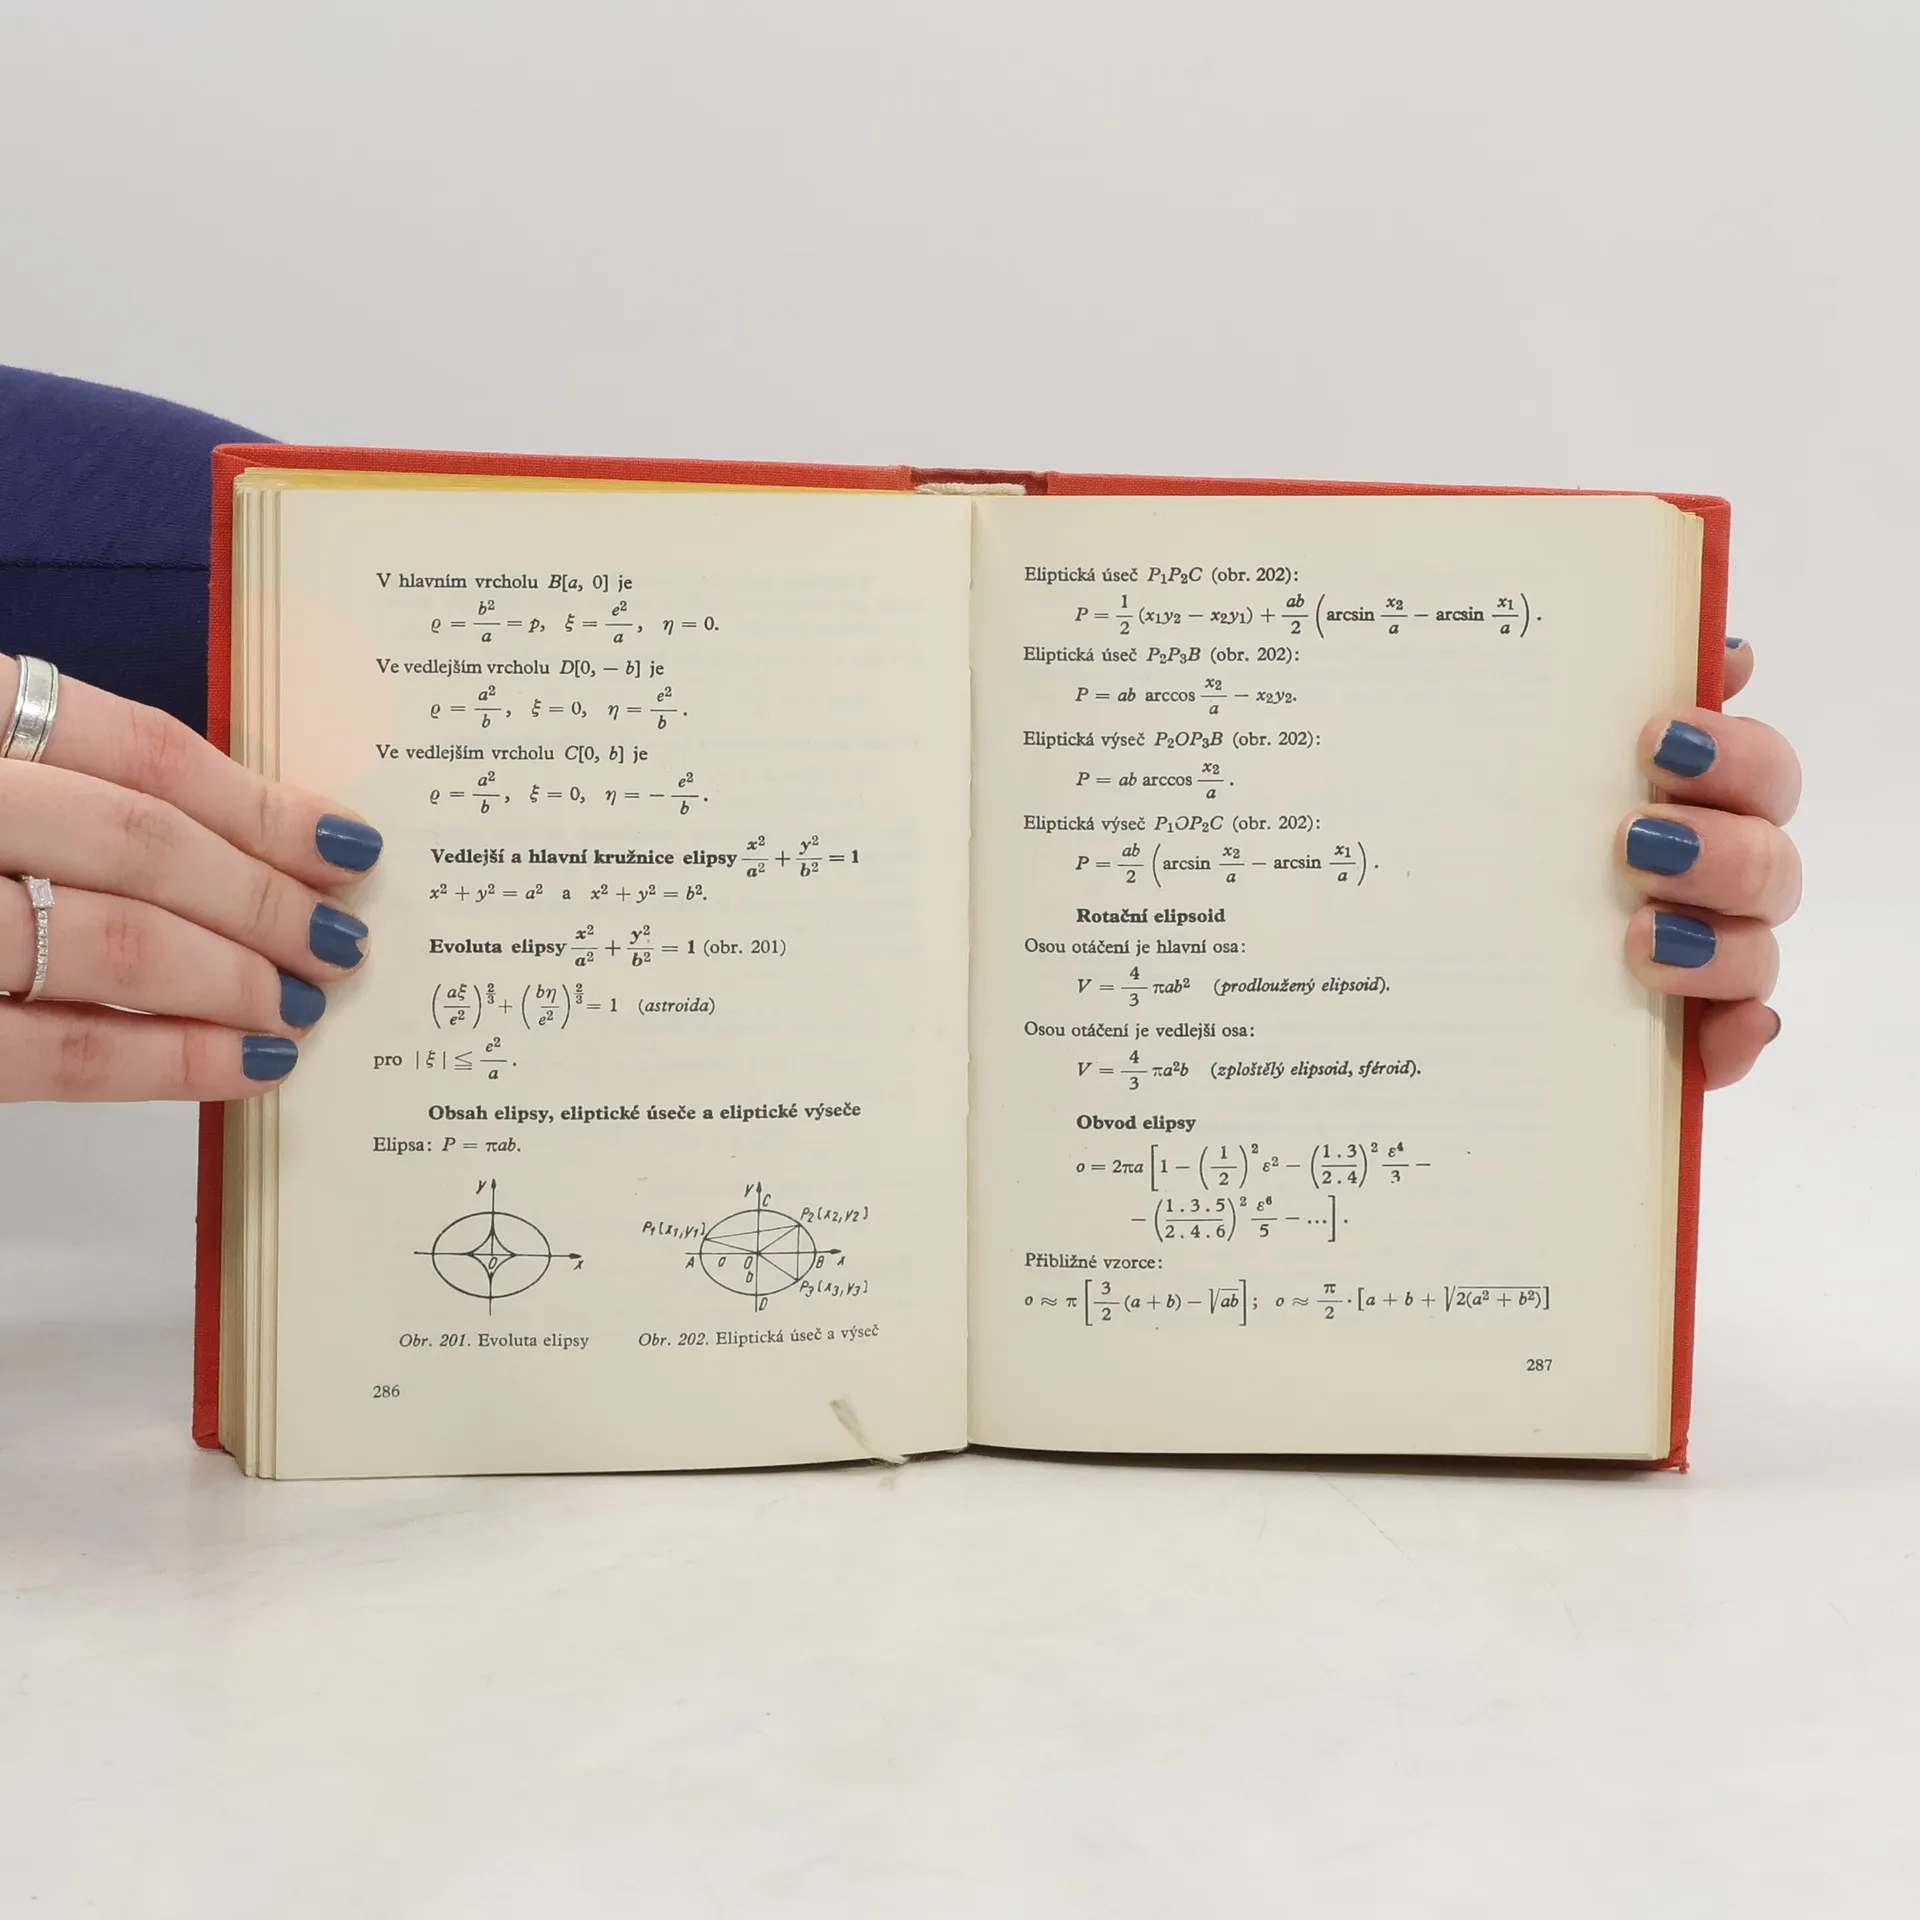 V hlavním vrcholu B[a, 0] je
ϱ = b²/a = p, ξ = e²/a, η = 0.
Ve vedlejším vrcholu D[0, — b] je
ϱ = a²/b, ξ = 0, η = e²/b.
Ve vedlejším vrcholu C[0, b] je
ϱ = a²/b, ξ = 0, η = — e²/b.
Vedlejší a hlavní kružnice elipsy x²/a² + y²/b² = 1
x² + y² = a² a x² + y² = b².
Evoluta elipsy x²/a² + y²/b² = 1 (obr. 201)
(aξ/e²)^(2/3) + (bη/e²)^(2/3) = 1 (astroida)
pro | ξ | ≦ e²/a.
Obsah elipsy, eliptické úseče a eliptické výseče
Elipsa: P = πab.
y
0
x
Obr. 201. Evoluta elipsy
y
C
P₁[x₁,y₁]
P₂[x₂,y₂]
A a 0 B x
b
P₃[x₃,y₃]
D
Obr. 202. Eliptická úseč a výseč
286
Eliptická úseč P₁P₂C (obr. 202):
P = 1/2 (x₁y₂ — x₂y₁) + ab/2 (arcsin x₂/a — arcsin x₁/a).
Eliptická úseč P₂P₃B (obr. 202):
P = ab arccos x₂/a — x₂y₂.
Eliptická výseč P₂OP₃B (obr. 202):
P = ab arccos x₂/a.
Eliptická výseč P₁OP₂C (obr. 202):
P = ab/2 (arcsin x₂/a — arcsin x₁/a).
Rotační elipsoid
Osou otáčení je hlavní osa:
V = 4/3 πab² (prodloužený elipsoid).
Osou otáčení je vedlejší osa:
V = 4/3 πa²b (zploštělý elipsoid, sféroid).
Obvod elipsy
o = 2πa [1 — (1/2)² ε² — (1.3/2.4)² ε⁴/3 —
— (1.3.5/2.4.6)² ε⁶/5 — ...].
Přibližné vzorce:
o ≈ π [3/2 (a + b) — √ab]; o ≈ π/2 · [a + b + √2(a² + b²)]
287